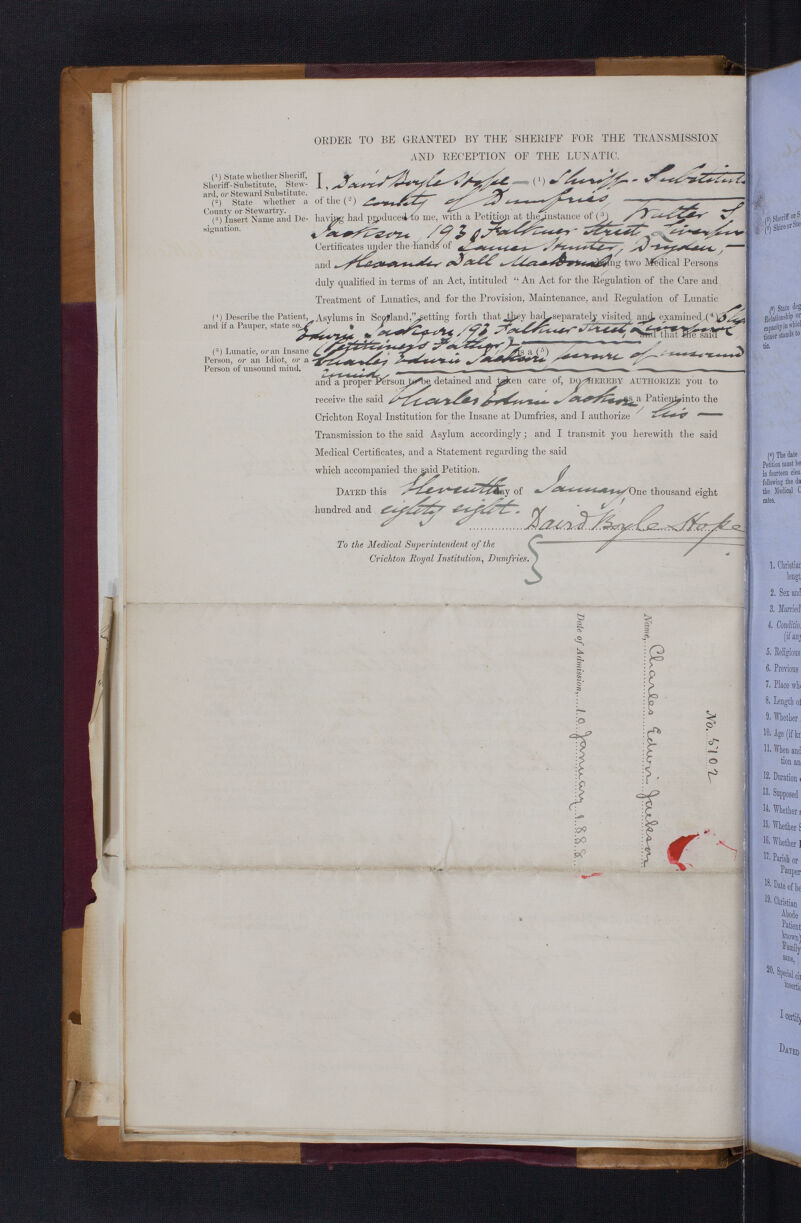 ORDER TO BE GRANTED BY THE SHERIFF FOR THE TRANSMISSION
AND RECEPTION OF THE LUNATIC.
(¹) State whether Sheriff,
Sheriff-Substitute, Stew-
ard, or Steward Substitute.
(²) State whether a
County or Stewartry.
(³) Insert Name and De-
signation.
(⁴) Describe the Patient,
and if a Pauper, state so.
(⁵) Lunatic, or an Insane
Person, or an Idiot, or a
Person of unsound mind.
I, David Boyle Hope — (¹) Sheriff-Substitute
of the (²) County of Dumfries
having had produced to me, with a Petition at the instance of (³) Walter S
Jackson, 193 Falkner Street Liverpool
Certificates under the hands of James Hunter, Dryden, —
and Alexander Dall MacDonald being two Medical Persons
duly qualified in terms of an Act, intituled "An Act for the Regulation of the Care and
Treatment of Lunatics, and for the Provision, Maintenance, and Regulation of Lunatic
Asylums in Scotland," setting forth that they had separately visited and examined (⁴)
Edwin Jackson, 193 Falkner Street, Liverpool
(Petitioner's Father) and that the said
Charles Edwin Jackson is a (⁵) person of unsound
mind,
and a proper Person to be detained and taken care of, DO HEREBY AUTHORIZE you to
receive the said Charles Edwin Jackson as a Patient into the
Crichton Royal Institution for the Insane at Dumfries, and I authorize his —
Transmission to the said Asylum accordingly; and I transmit you herewith the said
Medical Certificates, and a Statement regarding the said
which accompanied the said Petition.
DATED this Eleventh day of January One thousand eight
hundred and eighty eight.
David Boyle Hope
To the Medical Superintendent of the
Crichton Royal Institution, Dumfries.
No. 5102
Name, Charles Edwin Jackson
Date of Admission, 10 January 1888
(⁶) The date
Petition must be
in fourteen clea
following the da
the Medical C
cates.
1. Christian
lengt
2. Sex and
3. Married
4. Conditio
(if any
5. Religious
6. Previous
7. Place whe
8. Length of
9. Whether
10. Age (if kn
11. When and
tion an
12. Duration
13. Supposed
14. Whether
15. Whether
16. Whether
17. Parish or
Pauper
18. Date of be
19. Christian
Abode
Patient
known)
Family
sane,
20. Special cir
insertio
I certify
DATED